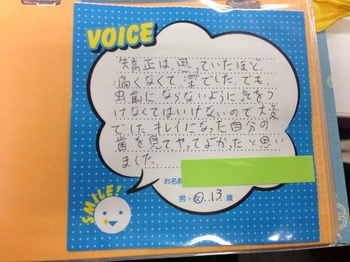 VOICE
矯正は思っていたほど
痛くなくて楽でした。でも
虫歯にならないように気をつ
けなくてはいけないので大変
でした。キレイになった自分の
歯を見てやってよかったと思い
ました。
お名前
男・女 13 歳
SMILE!